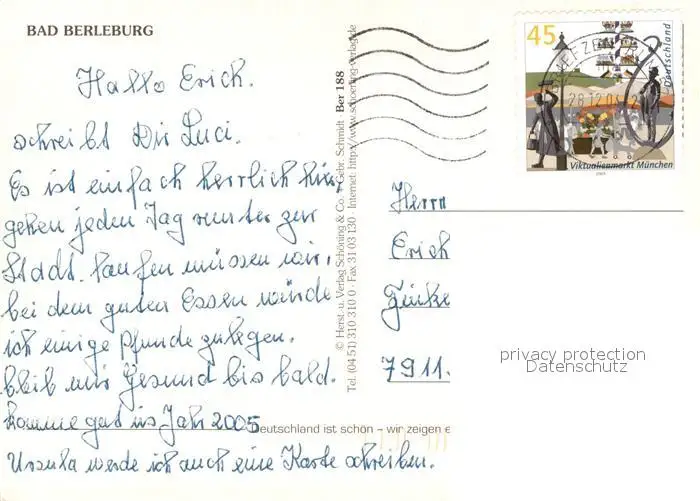 BAD BERLEBURG
Hallo Erich.
schreibt Dir Luci.
Es ist einfach herrlich hier,
gehen jeden Tag runter zur
Stadt. laufen müssen wir,
bei dem guten Essen würde
ich einige Pfunde zulegen.
bleib mir Gesund bis bald.
komme gut ins Jahr 2005
Ursula werde ich auch eine Karte schreiben.
© Herst.- u. Verlag Schöning & Co. + Gebr. Schmidt · Ber 188
Tel. (04 51) 310 310 0 · Fax 31 03 130 · Internet: http://www.schoening-verlag.de
Deutschland ist schön – wir zeigen e
45
Deutschland
Viktualienmarkt München
BRIEFZEN
28.12.0
Herrn
Erich
7911
privacy protection
Datenschutz